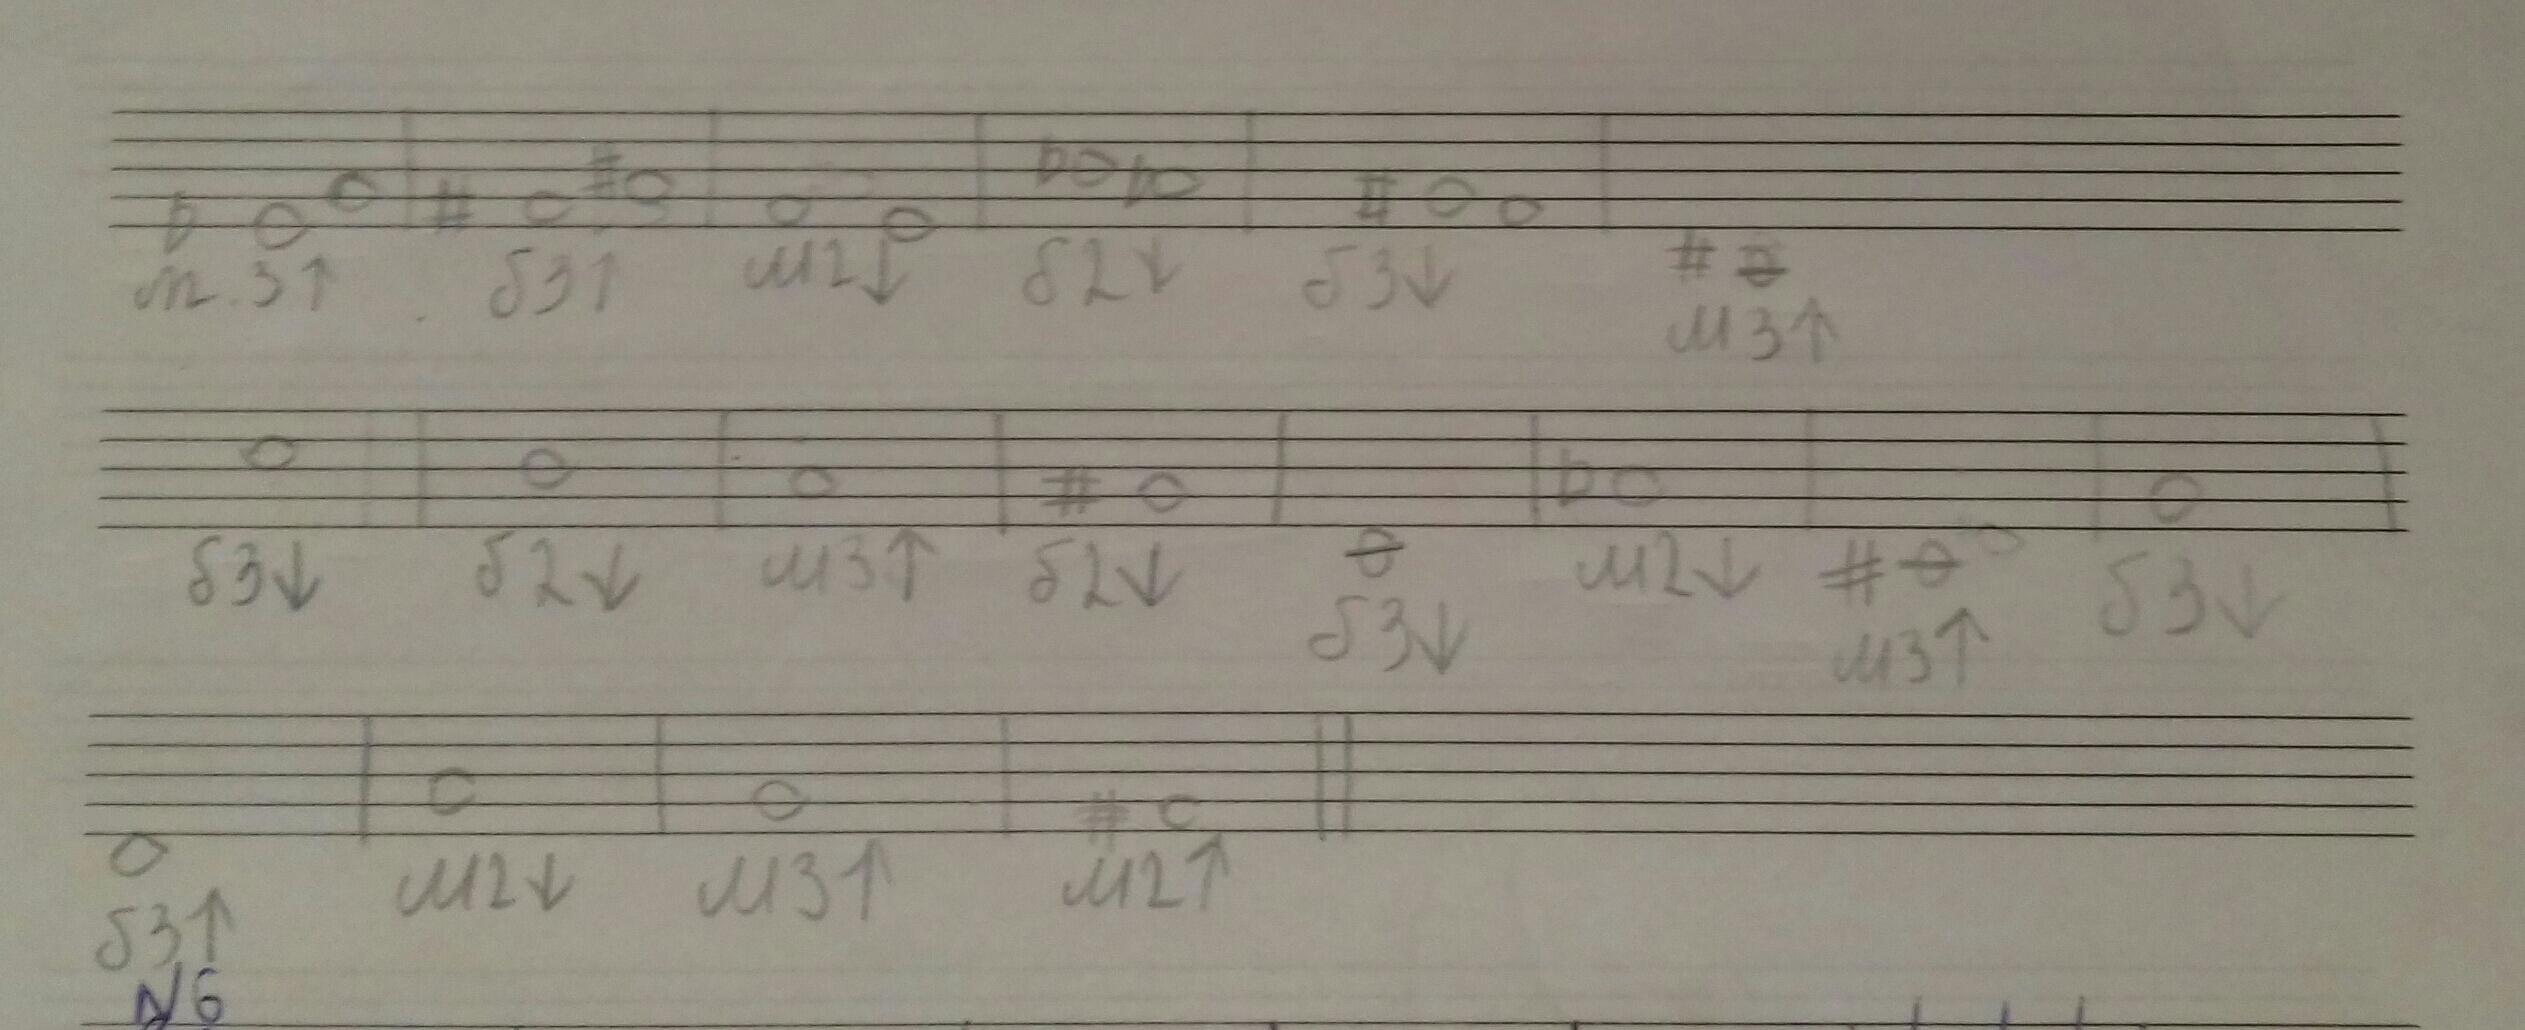 м.3↑ б3↑ м2↓ б2↓ б3↓ м3↑
б3↓ б2↓ м3↑ б2↓ б3↓ м2↓ м3↑ б3↓
б3↑ м2↓ м3↑ м2↑
№6